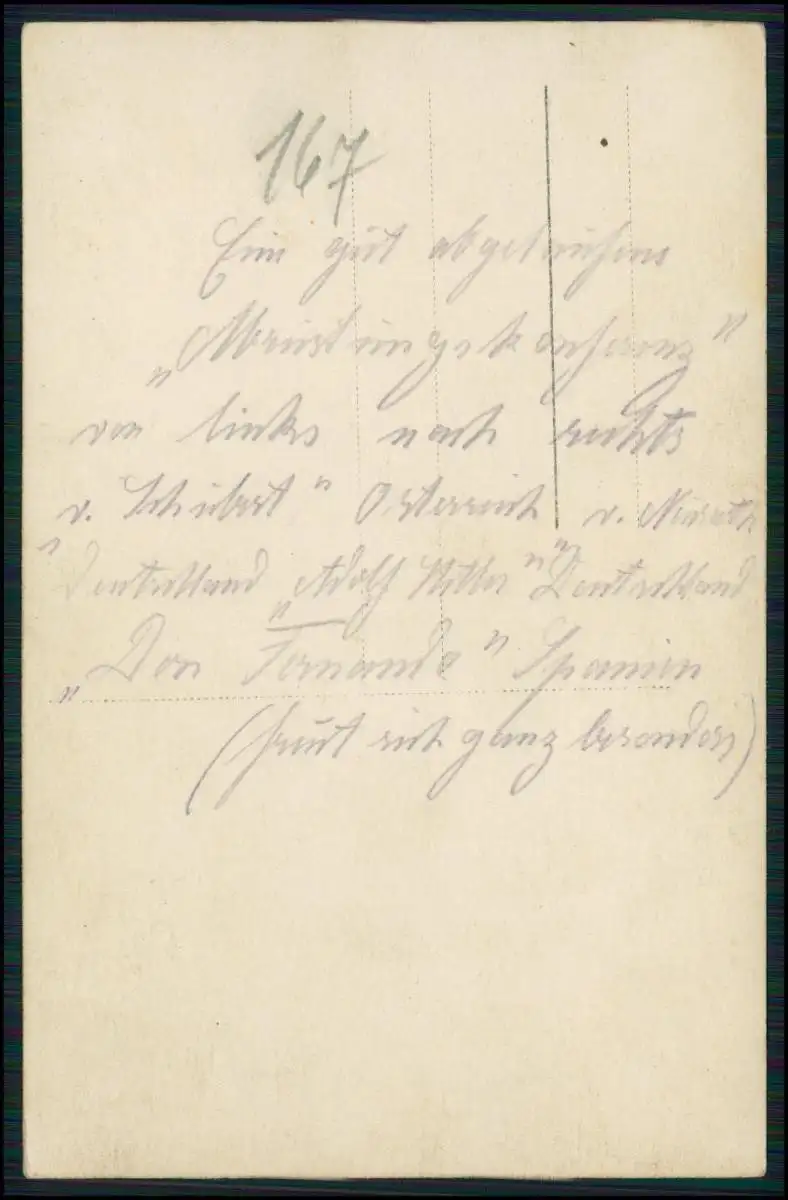 167
Eine gut abgelaufene
„Abrüstungskonferenz"
von links nach rechts
v. Schubert" Österreich v. Neurath
"Deutschland „Adolf Hitler" "Deutschland
„Don Fernando" Spanien
(freut sich ganz besonders)